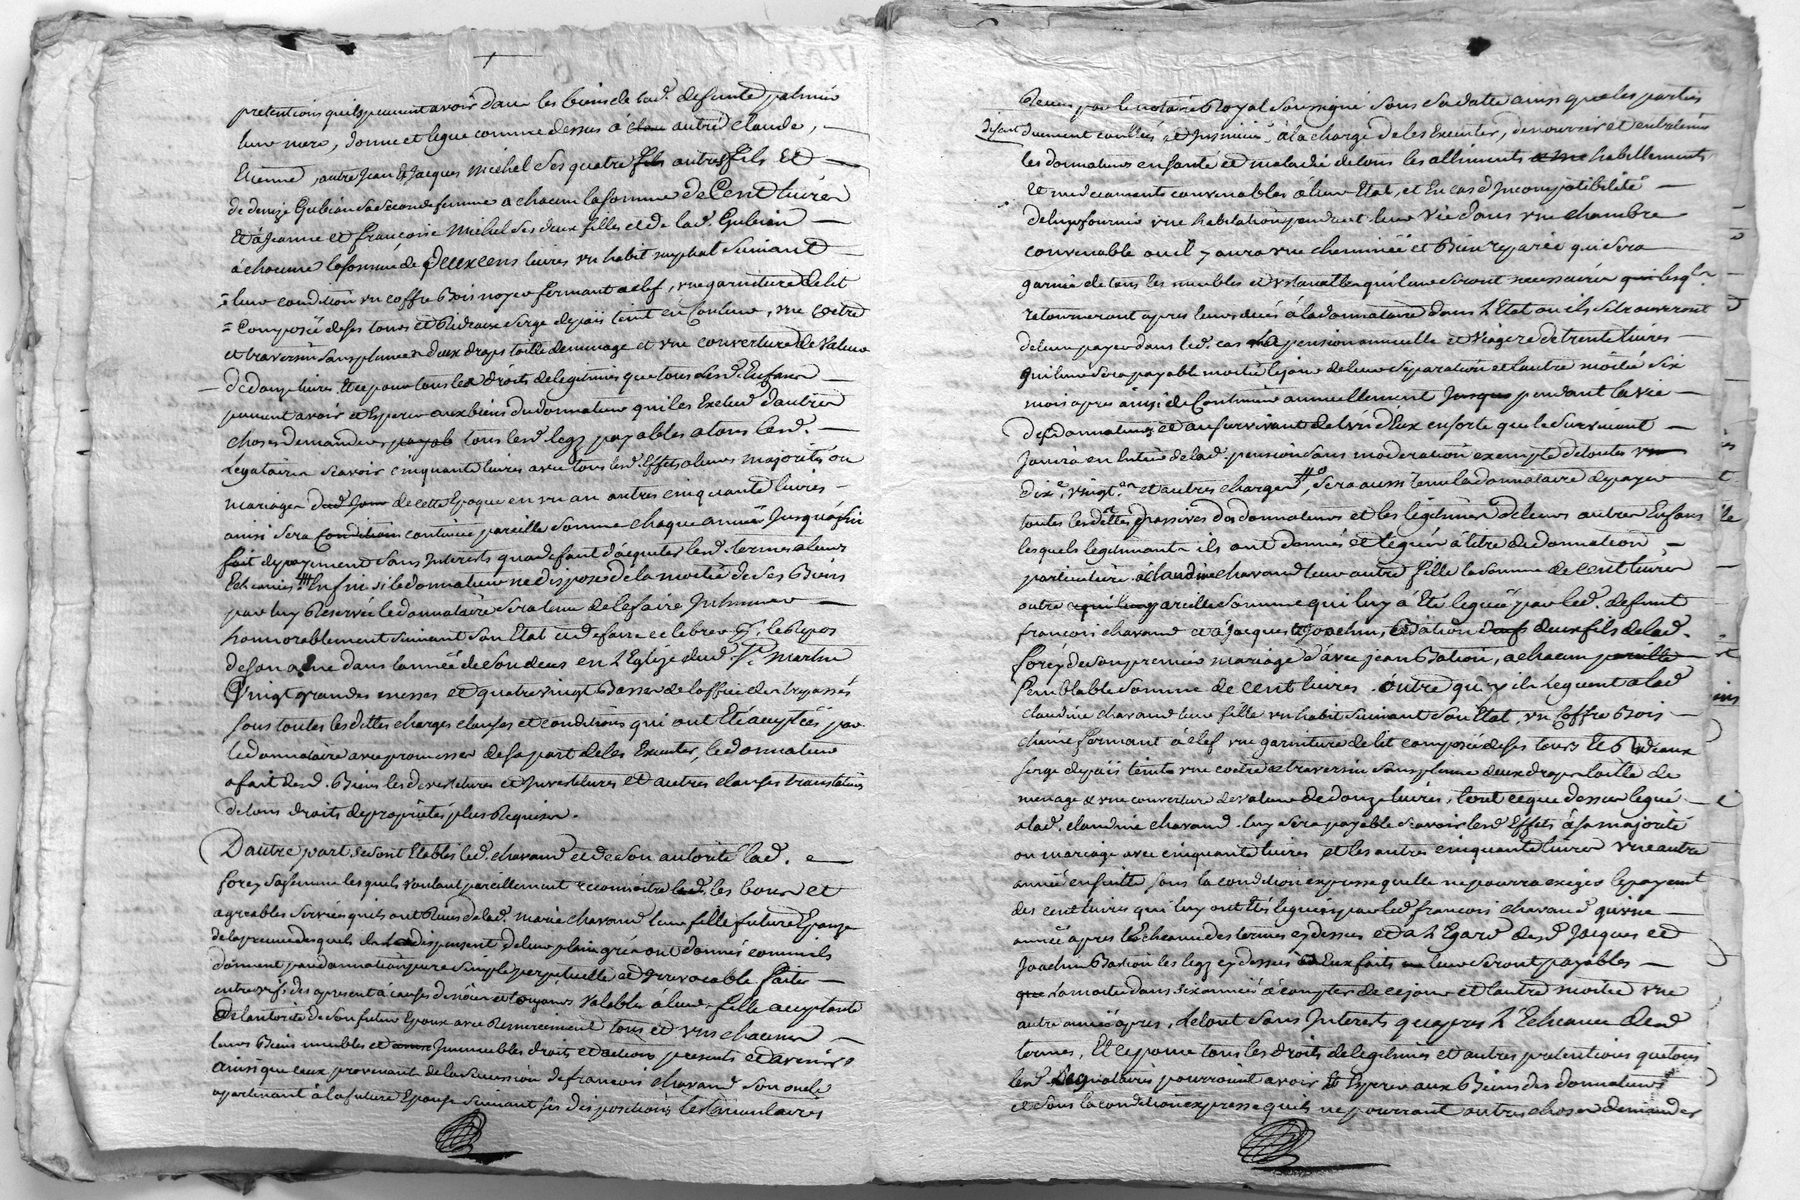 pretentions quils peuvent avoir dans les biens de lad. defunte palmier
leur mere, donne et legue comme dessus à autre claude, —
Etienne, autre Jean & Jacques Michel ses quatre fils autres fils Et —
de denize Gubian sa seconde femme a chacun la somme de Cent livres
Et à Jeanne et françoise Michel ses deux filles et de lad. Gubian —
à chacune la somme de Deux cens livres un habit nuptial suivant —
leur condition un coffre Bois noyer fermant a clef, une garniture de lit
Composée de ses tours et Rideaux Serge depaÿs teint en Couleur, une coetre
et traversin sans plumes deux draps toille de menage et une couverture de Valeur
de douze livres Et ce pour tous les droits de legitimes que tous Lesd. Enfans —
peuvent avoir et Esperer aux biens du donnateur qui les Exclud d'autres
choses demander payab tous lesd. legz payables a tous lesd. —
Legataires scavoir cinquante livres avec tous lesd. Effets a leurs majorités ou
mariages de cette Epoque en un an autres cinquante livres —
ainsi sera Conditions continué pareille somme chaque année Jusqu'a fin
fait de payement sans Interets qu'a defaut d'acquiter lesd. termes a leurs
Echeances # Enfin si le donnateur ne dispose de la moitié de ses Biens
par luy Reservée le donnataire sera tenu de le faire Inhumer —
honnorablement suivant son Etat et de faire celebrer pr. le Repos
de son ame dans l'année de son deces en L'Eglise dud. St. Martin
Vingt grandes messes et quatre vingt Basses de l'office des trepassés
sous toutes lesdittes charges clauses et conditions qui ont Eté acceptées par
le donnataire avec promesses de sa part de les Executer, le donnateur
a fait desd. Biens les devestitures et Investitures et autres clauses translatives
de tous droits de proprieté plus Requises.
D'autre part se sont Etablis led. chavand et de son autorité lad. —
forey sa femme lesquels voulant pareillement reconnoitre les bons et
agreables services quils ont Reçus de lad. marie chavand leur fille future Epouse
de la preuve desquels ils la dispensent de leur plein gré ont donnés comme ils
donnent par donnation pure simple perpetuelle et irrevocable faite —
entre vifs des apresent à cause de nôces et toujours Valable à leur fille acceptante
de l'autorité de son futur Epoux avec Remerciement tous et uns chacuns —
leurs Biens meubles et Immeubles droits et actions presents et avenir,
ainsi que ceux provenant de la succession de francois chavand son oncle
apartenant à la future Epouse suivant ses dispositions testamentaires
Recues par le notaire Royal soussigné sous sa date ainsi que les parties
disent duement contrôlées, et Insinuées, à la charge de les Executer, de nourrir et entretenir
les donnateurs en santé et maladie de tous les alliments habillements
et medicaments convenables à leur Etat, et En cas d'Incompatibilité —
de leur fournir une habitation pendant leur Vie dans une chambre
convenable ou il y aura une cheminée et Bien reparée qui sera —
garnie de tous les meubles et Ustancilles qui leur seront necessaires lesqls.
retourneront apres leurs deces à la donnataire dans L'Etat ou ils se trouveront
de leur payer dans led. cas pension annuelle et Viagere de trente livres —
qui leur sera payable moitié le jour de leur separation et l'autre moitié six
mois apres ainsi de Continuer annuellement Jusques pendant la vie —
desdonnateurs et au survivant de l'un d'Eux en sorte que le survivant —
Jouira en Entier de lad. pension sans moderation exempte de toutes
dixe., vingte. et autres charges #, sera aussi tenue la donnataire de payer
toutes les dettes passives des donnateurs et les legitimes de leurs autres Enfans
lesquels legitimants ils ont donnés et legués à titre de donnation —
particuliere à claudine chavand leur autre fille la somme de cent livres
outre pareille somme qui luy a Eté leguée par led. defunt
francois chavand et à Jacques & Joachin, Bation deux fils de lad.
forey de son premier mariage d'avec jean Bation, a chacun pareille
semblable somme de cent livres. outre quoy ils Leguent a lad.
claudine chavand leur fille un habit suivant son Etat, un Coffre Bois —
chaine fermant à clef une garniture de lit composée de ses tours Et Rideaux
serge depaÿs teinte une coetre & traversin sans plume deux draps toille de
menage & une couverture de valeur de douze livres, tout ce que dessus legué —
a lad. claudine chavand luy sera payable scavoir lesd. Effets à sa majorité
ou mariage avec cinquante livres et les autres cinquante livres une autre
année ensuitte sous la condition expresse quelle ne pourra exiger le payement
des cent livres qui luy ont Eté leguées par led. francois chavand qu'une —
année apres l'Echeance des termes cy dessus et a L'Egard desd. Jacques et
Joachin Bation les legz cy dessus a Eux faits leur seront payables —
que la moitié dans six années à compter de ce jour et l'autre moitié une
autre année apres, le tout sans Interets qu'apres L'Echeance desd.
termes, Et ce pour tous les droits de legitimes et autres pretentions que tous
lesd. Legataires pourroient avoir Et Esperer aux Biens des donnateurs
et sous la condition expresse quils ne pourront autres choses demander